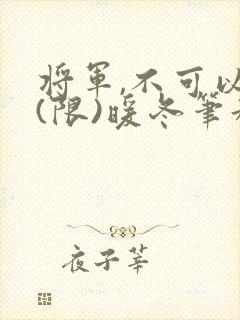 將軍,不可以
(限)暖冬筆
夜子莘